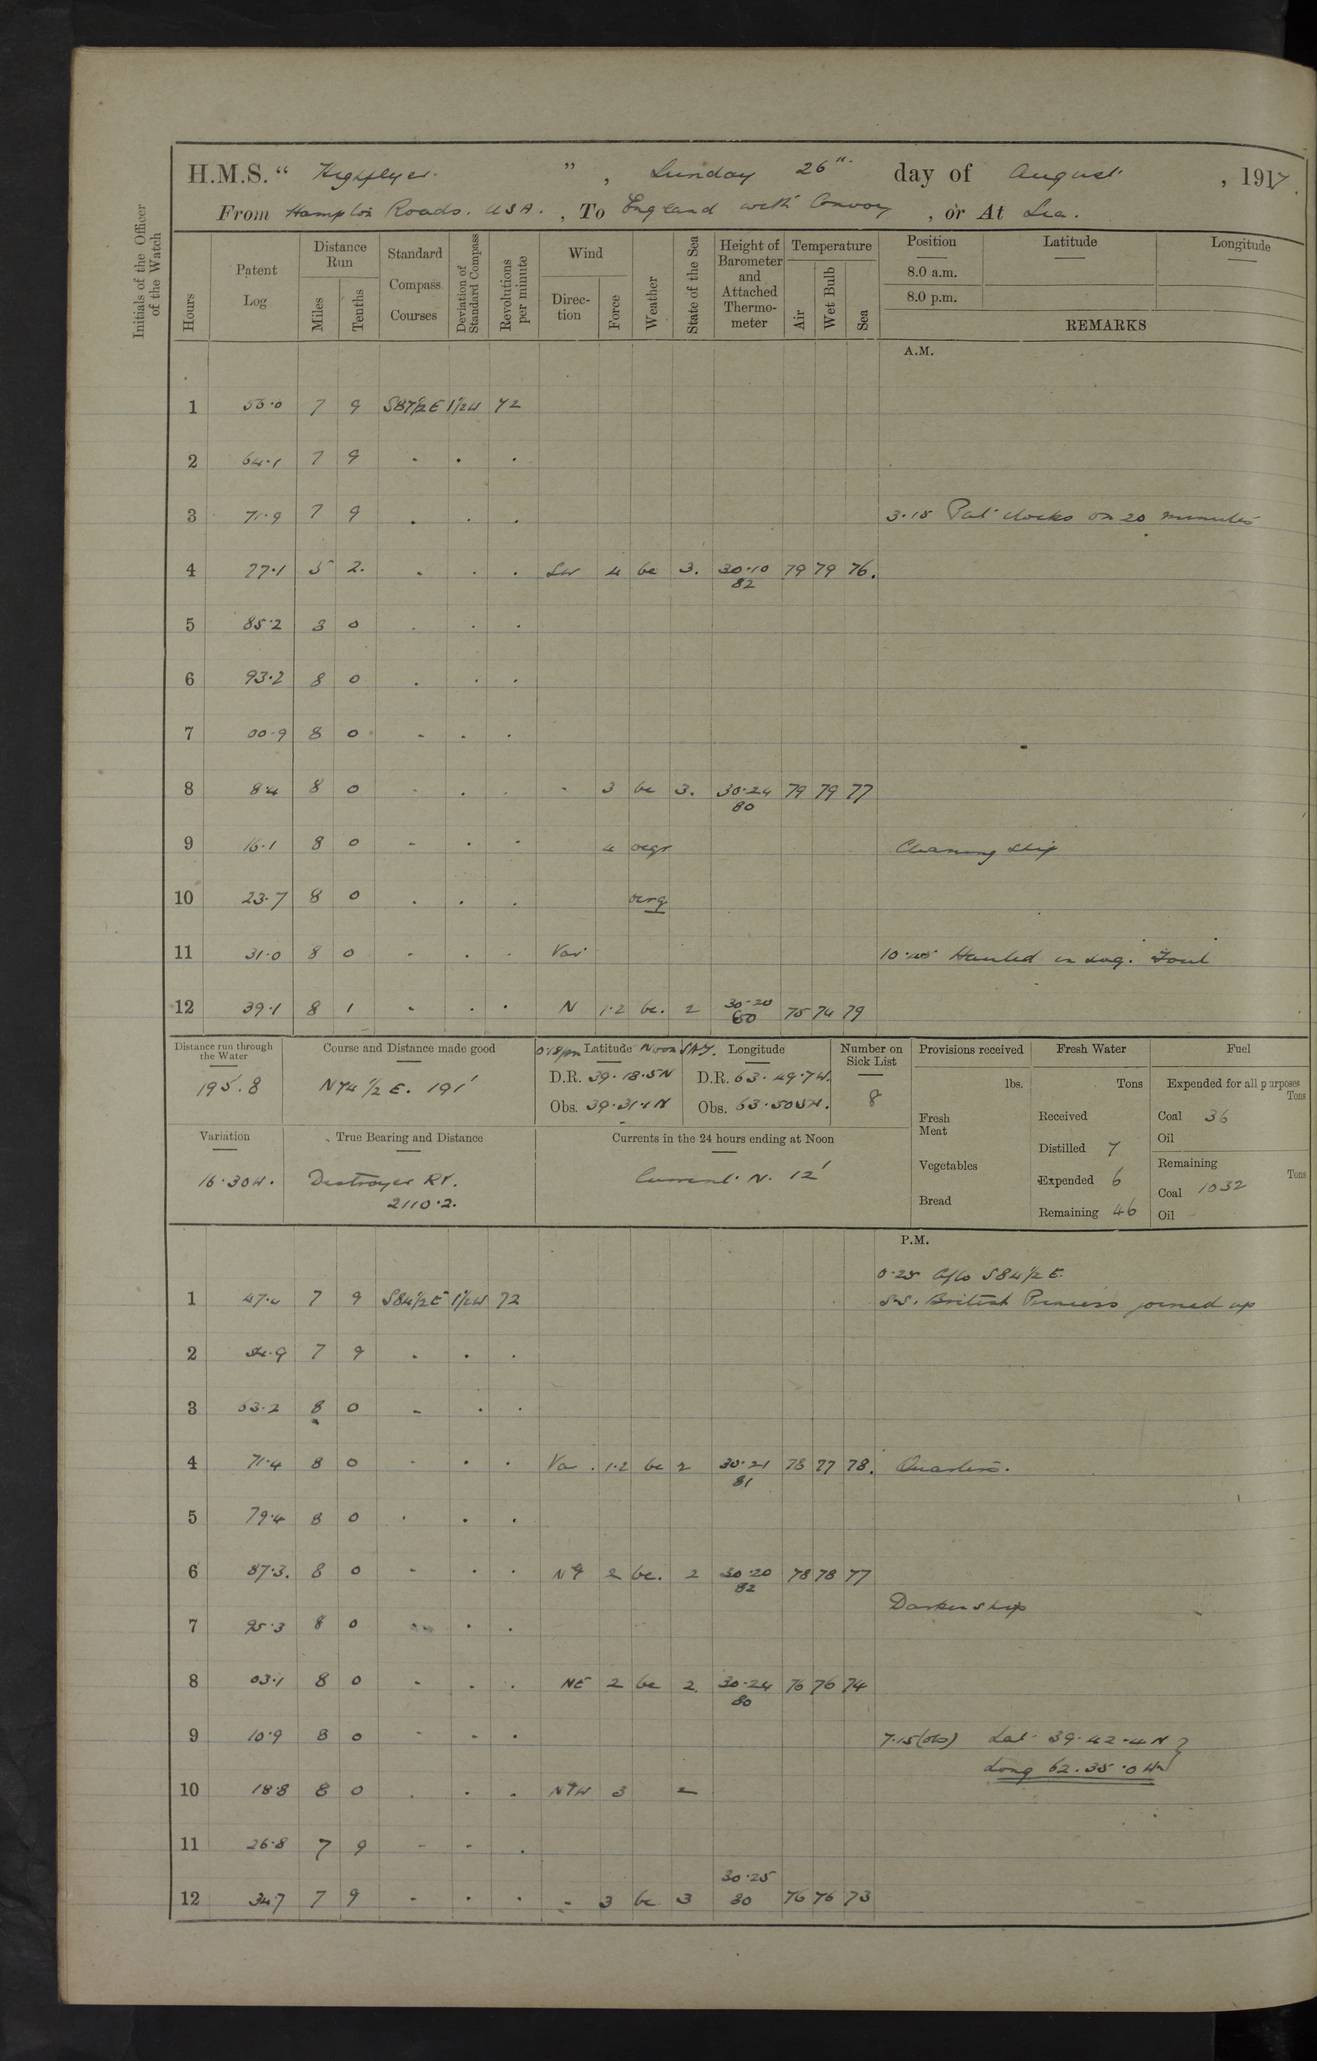 H.M.S. " Highflyer. " , Sunday 26th day of August , 1917.
From Hampton Roads. USA. , To England with Convoy , or At Sea.
Initials of the Officer of the Watch
Hours Patent Log Distance Run Miles Tenths Standard Compass Courses Deviation of Standard Compass Revolutions per minute Wind Direc-tion Force Weather State of the Sea Height of Barometer and Attached Thermo-meter Temperature Air Wet Bulb Sea Position Latitude Longitude
8.0 a.m.
8.0 p.m.
REMARKS
A.M.
1 56.0 7 9 S87½E 1½W 72
2 64.1 7 9 . . .
3 71.9 7 9 . . . 3.15 Put clocks on 20 minutes
4 77.1 5 2. . . . SW 4 bc 3. 30.10 79 79 76.
82
5 85.2 3 0 . . .
6 93.2 8 0 . . .
7 00.9 8 0 - . .
8 8.4 8 0 - . . - 3 bc 3. 30.24 79 79 77
80
9 16.1 8 0 - . - 4 ocgr Cleaning Ship
10 23.7 8 0 . . . ocrq
11 31.0 8 0 - . . Var 10.45 Hauled in Log. Foul
12 39.1 8 1 - . . N 1.2 bc. 2 30.20 75 74 79
80
Distance run through the Water Course and Distance made good 0.18pm Latitude Noon SAT. Longitude Number on Sick List Provisions received Fresh Water Fuel
195.8 N74½E. 191' D.R. 39.18.5N D.R. 63.49.7W. 8 lbs. Tons Expended for all purposes Tons
Obs. 39.31.1N Obs. 63.50.5W. Fresh Meat Received Coal 36
Oil
Variation True Bearing and Distance Currents in the 24 hours ending at Noon Distilled 7
16.30W. Destroyer RV. Current. N. 12' Vegetables Expended 6 Remaining Tons
2110.2. Coal 1032
Bread Remaining 46 Oil
P.M.
0.25 A/co S84½E.
1 47.0 7 9 S84½E 1½W 72 S.S. British Princess joined up
2 54.9 7 9 . . .
3 63.2 8 0 - . .
4 71.4 8 0 - . . Var. 1.2 bc 2 30.21 78 77 78. Quarters.
81
5 79.4 8 0 . . .
6 87.3. 8 0 - . . 2 bc. 2 30.20 78 78 77
82
Darken ship
7 95.3 8 0 . .
8 03.1 8 0 - . . NE 2 bc 2 30.24 76 76 74
80
9 10.9 8 0 - . . 7.15 (obs) Lat. 39.42.4 N
Long 62.35.0 W
10 18.8 8 0 . . . 3 -
11 26.8 7 9 - - .
12 34.7 7 9 - . . - 3 bc 3 30.25 76 76 73
80